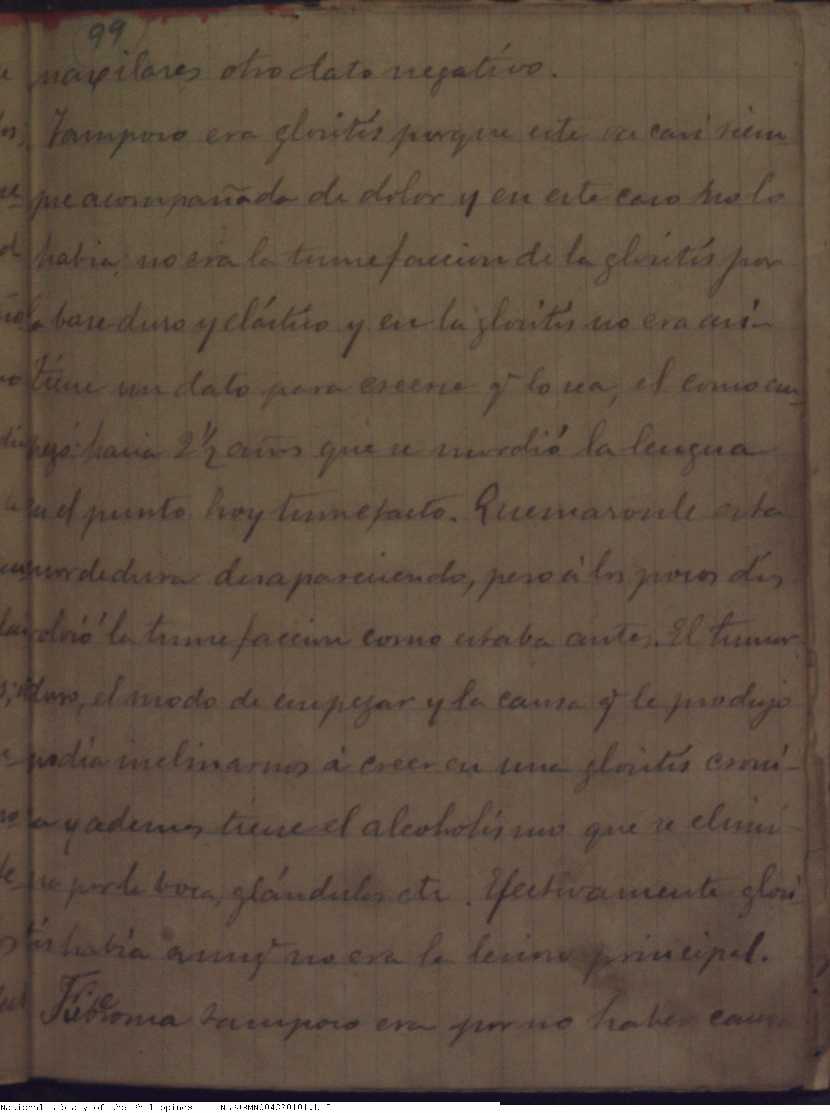 99
maxilares otro dato negativo.
Tampoco era glositis porque esta va casi siem
pre acompañada de dolor y en este caso no lo
habia, no era la tumefaccion de la glositis por
la base duro y elástico y en la glositis no era asi-
tiene un dato para creerse q̃ lo sea, el como em
pezó: hacia 2 1/2 años que se mordió la lengua
en el punto hoy tumefacto. Quemaronle esta
mordedura desapareciendo, pero á los pocos dís
volvió la tumefaccion como estaba antes. El tumor
duro, el modo de empezar y la causa q̃ le produjo
podia inclinarnos á creer en una glositis croni-
ca y ademas tiene el alcoholismo que se elimi-
na por la boca, glándulas etc. Efectivamente glosi
tis habia aunq̃ no era la lesion principal.
Fibroma tampoco era por no haber
National Library of the Philippines